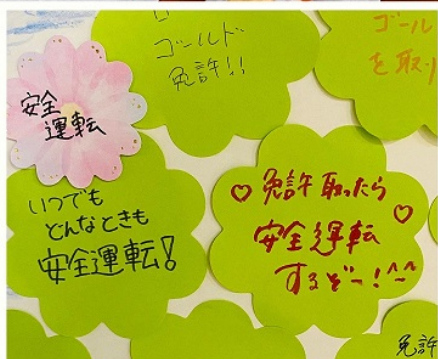 ゴールド
免許!!
ゴール
を取り
安全
運転
いつでも
どんなときも
安全運転!
♡免許取ったら♡
安全運転
するぞー!^^
免許